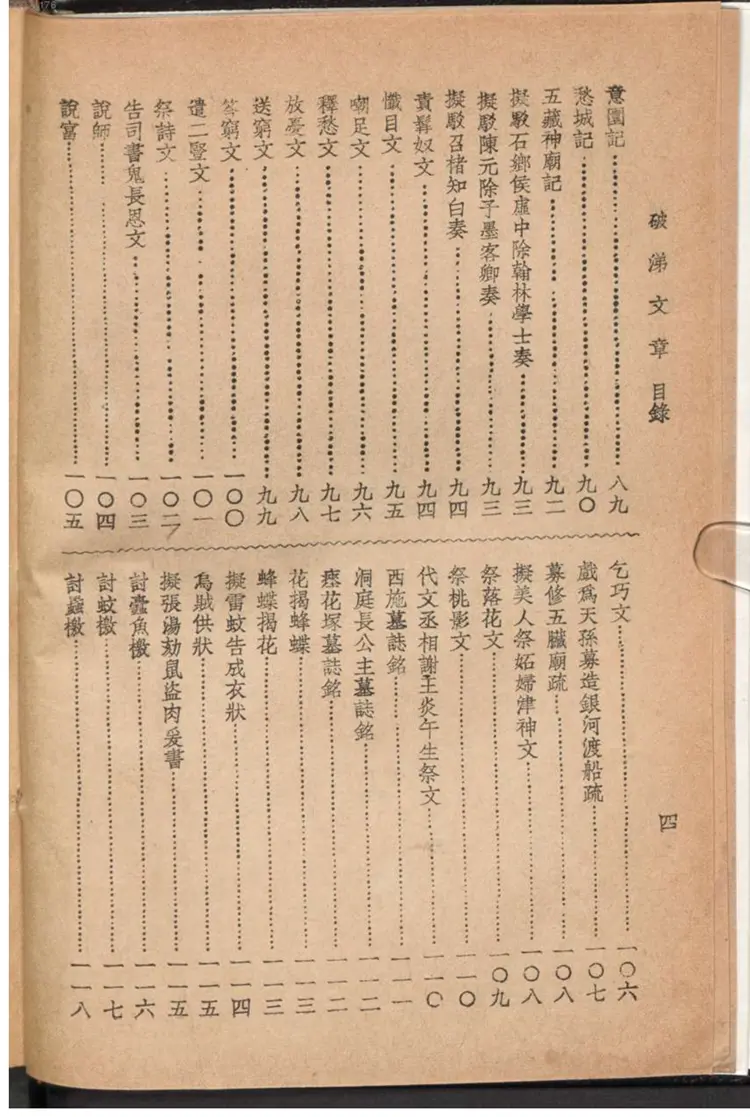 破涕文章 目錄
四
意園記……八九
愁城記……九〇
五藏神廟記……九二
擬駁石鄉侯虛中除翰林學士奏……九三
擬駁陳元除子墨客卿奏……九三
擬駁召楮知白奏……九四
責髯奴文……九四
懺目文……九五
嘲足文……九六
釋愁文……九七
放憂文……九八
送窮文……九九
答窮文……一〇〇
遣二豎文……一〇一
祭詩文……一〇二
告司書鬼長恩文……一〇三
說師……一〇四
說富……一〇五
乞巧文……一〇六
戲爲天孫募造銀河渡船疏……一〇七
募修五臟廟疏……一〇八
擬美人祭妬婦津神文……一〇八
祭落花文……一〇九
祭桃影文……一一〇
代文丞相謝王炎午生祭文……一一〇
西施墓誌銘……一一一
洞庭長公主墓誌銘……一一二
瘞花塚墓誌銘……一一二
花揭蜂蝶……一一三
蜂蝶揭花……一一三
擬雷蚊告成衣狀……一一四
烏賊供狀……一一五
擬張湯劾鼠盜肉爰書……一一五
討蠹魚檄……一一六
討蚊檄……一一七
討蝨檄……一一八